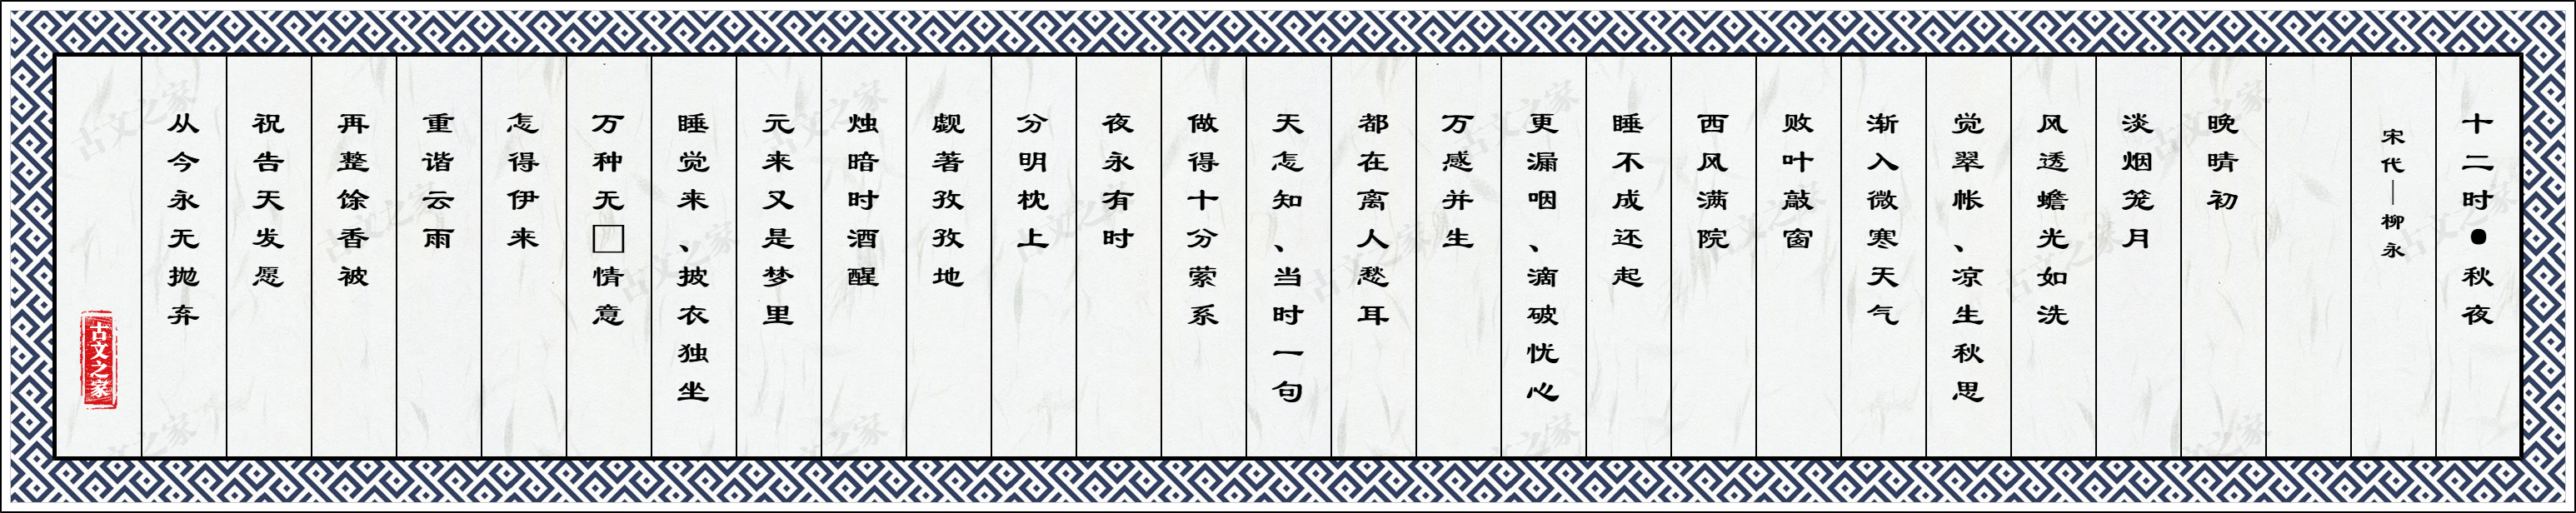 十二时●秋夜
宋代—柳永
晚晴初
淡烟笼月
风透蟾光如洗
觉翠帐、凉生秋思
渐入微寒天气
败叶敲窗
西风满院
睡不成还起
更漏咽、滴破忧心
万感并生
都在离人愁耳
天怎知、当时一句
做得十分萦系
夜永有时
分明枕上
觑著孜孜地
烛暗时酒醒
元来又是梦里
睡觉来、披衣独坐
万种无□情意
怎得伊来
重谐云雨
再整馀香被
祝告天发愿
从今永无抛弃
古文之家